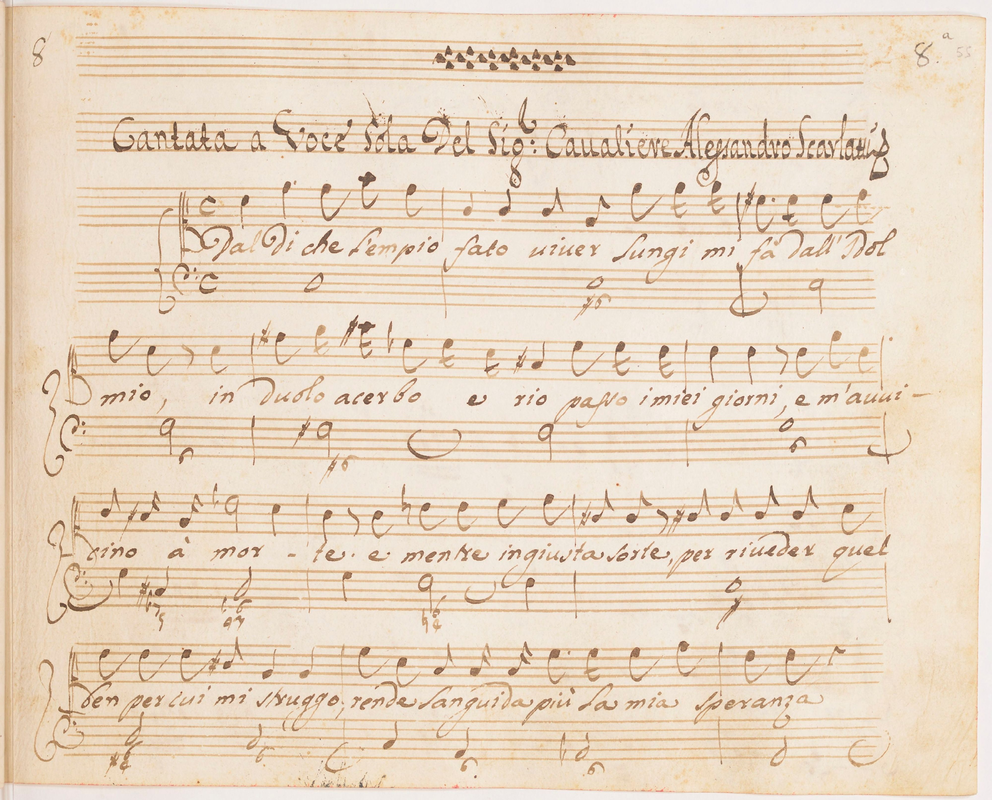 8 8.a 55
Cantata a Voce Sola Del Sig.r Caualiere Alessandro Scarlatti
Dal Di che l'empio fato viver lungi mi fà dall' Idol
mio, in duolo acerbo e rio passo i miei giorni, e m'avvi-
cino à mor-te. e mentre ingiusta sorte, per riveder quel
ben per cui mi struggo, rende languida più la mia speranza